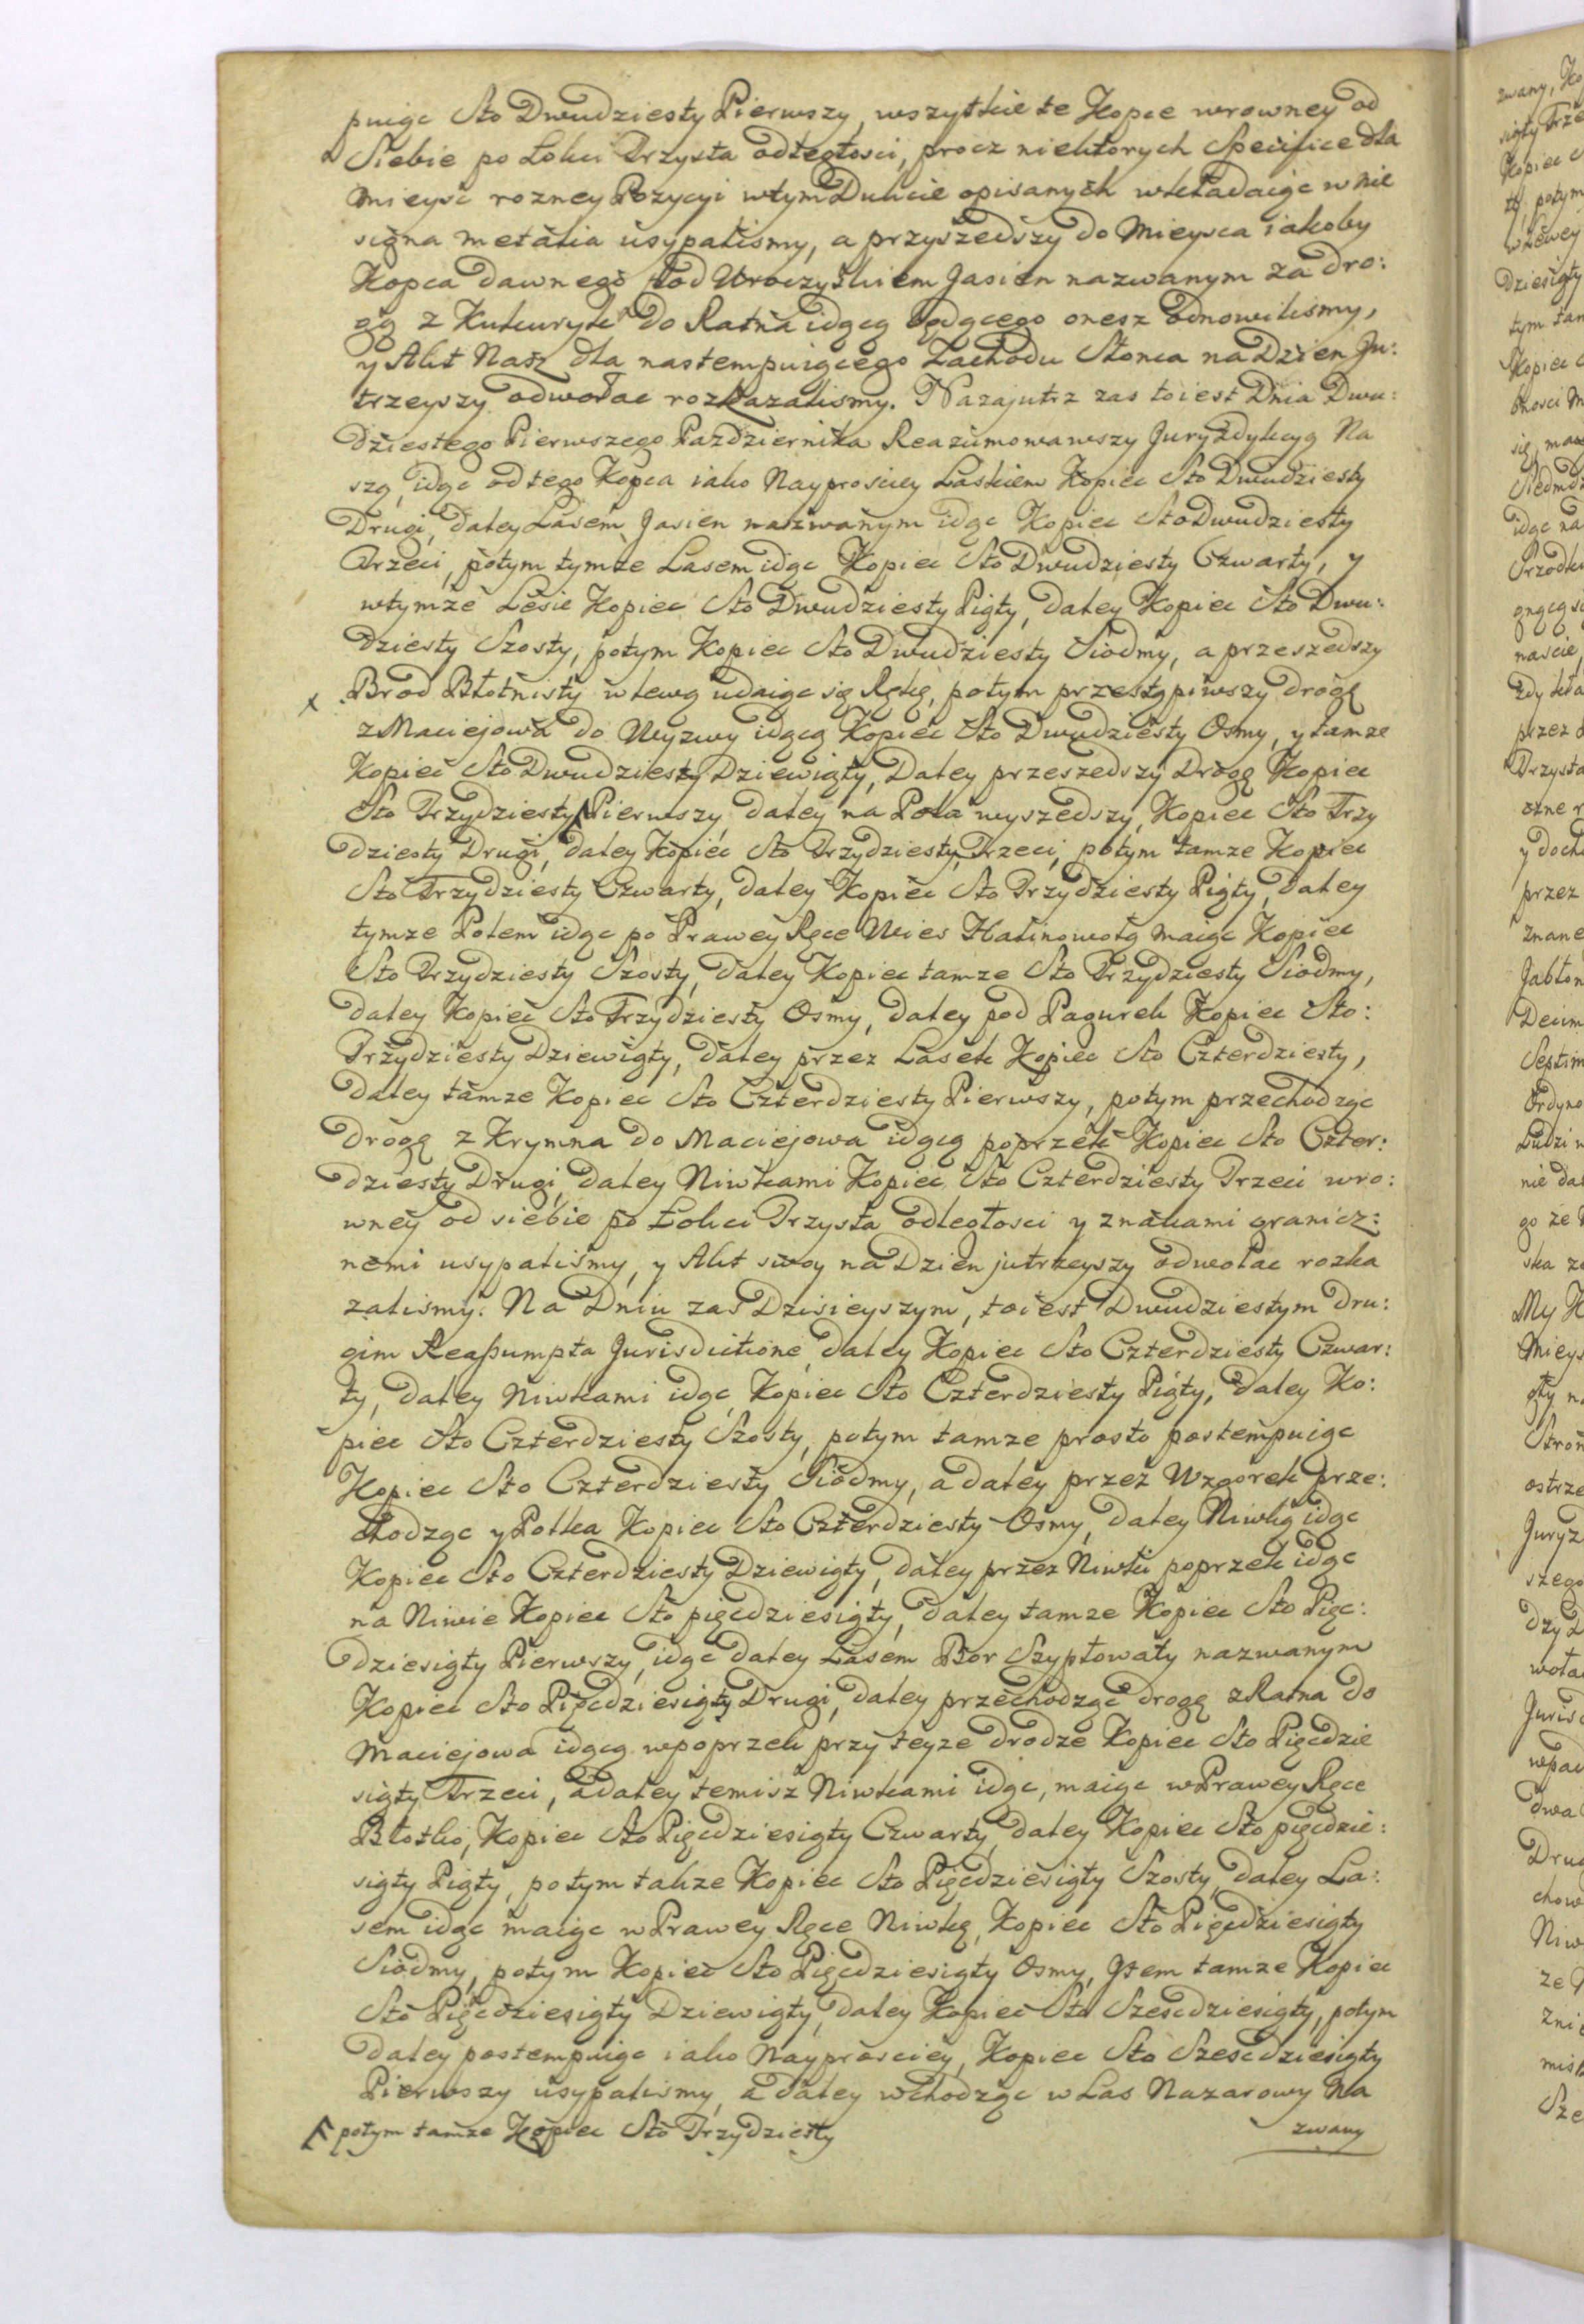 puiąc Sto Dwudziesty Pierwszy, wszytkie te Kopce wrowney od
Siebie po Łokci Trzysta odległosci, procz niektorych Specifice dla
Mieysc rozney Pozycyi wtym Dukcie opisanych wkładaiąc w nie
signa metalia usypalismy, a przyszedszy do Mieysca iakoby
Kopca dawnego pod Uroczyskiem Jasien nazwanym za dro:
gą z Kukuryk do Ratna idącą będącego onesz odnowilismy,
y Akt Nasz dla nastempuiącego Zachodu Słonca na Dzien Ju:
trzeyszy odwołac rozkazalismy. Nazajutrz zas toiest Dnia Dwu:
dziestego Pierwszego Pazdziernika Reazumowawszy Juryzdykcyą Na
szą, idąc od tego Kopca iako Nayprosciey Laskiem Kopiec Sto Dwudziesty
Drugi, daley Lasem Jasien nazwanym idąc Kopiec Sto Dwudziesty
Trzeci, potym tymże Lasem idąc Kopiec Sto Dwudziesty Czwarty, y
wtymże Lesie Kopiec Sto Dwudziesty Piąty, daley Kopiec Sto Dwu:
dziesty Szosty, potym Kopiec Sto Dwudziesty Siodmy, a przeszedszy
x Brod Błotnisty w lewą udaiąc się Rękę, potym przestąpiwszy drogę
z Maciejowa do Wyzwy idącą Kopiec Sto Dwudziesty Osmy, y tamze
Kopiec Sto Dwudziesty Dziewiąty, Daley przeszedszy Drogę Kopiec
Sto Trzydziesty Pierwszy, daley na Pola wyszedszy, Kopiec Sto Trzy
dziesty Drugi, daley Kopiec Sto Trzydziesty Trzeci, potym tamze Kopiec
Sto Trzydziesty Czwarty, daley Kopiec Sto Trzydziesty Piąty, daley
tymze Polem idąc po Prawey Ręce Wies Halinowolą maiąc Kopiec
Sto Trzydziesty Szosty, daley Kopiec tamze Sto Trzydziesty Siodmy,
daley Kopiec Sto Trzydziesty Osmy, daley pod Pagurek Kopiec Sto:
Trzydziesty Dziewiąty, daley przez Lasek Kopiec Sto Czterdziesty,
daley tamze Kopiec Sto Czterdziesty Pierwszy, potym przechodząc
drogę z Krymna do Maciejowa idącą poprzek Kopiec Sto Czter:
dziesty Drugi, daley Niwkami Kopiec Sto Czterdziesty Trzeci wro:
wney od siebie po Łokci Trzysta odległosci y znakami granicz:
nemi usypalismy, y Akt swoy na Dzien jutrzeyszy odwołac rozka
zalismy. Na Dniu zas Dzisieyszym, toiest Dwudziestym dru:
gim Reaſsumpta Jurisdictione, daley Kopiec Sto Czterdziesty Czwar:
ty, daley Niwkami idąc, Kopiec Sto Czterdziesty Piąty, daley Ko:
piec Sto Czterdziesty Szosty, potym tamze prosto postempuiąc
Kopiec Sto Czterdziesty Siodmy, a daley przez Wzgorek prze:
chodząc y Polka Kopiec Sto Czterdziesty Osmy, daley Niwką idąc
Kopiec Sto Czterdziesty Dziewiąty, daley przez Niwki poprzek idąc
na Niwie Kopiec Sto pięcdziesiąty, daley tamze Kopiec Sto Pięc:
dziesiąty Pierwszy, idąc daley Lasem Bor Szypłowaty nazwanym
Kopiec Sto Pięcdziesiąty Drugi, daley przechodząc drogę z Ratna do
Maciejowa idącą wpoprzek przy teyze drodze Kopiec Sto Pięcdzie
siąty Trzeci, a daley temisz Niwkami idąc, maiąc w Prawey Ręce
Błotko, Kopiec Sto Pięcdziesiąty Czwarty, daley Kopiec Sto pięcdzie:
siąty Piąty, potym takze Kopiec Sto Pięcdziesiąty Szosty, daley La:
sem idąc maiąc w Prawey Ręce Niwkę, Kopiec Sto Pięcdziesiąty
Siodmy, potym Kopiec Sto Pięcdziesiąty Osmy, Item tamze Kopiec
Sto Pięcdziesiąty Dziewiąty, daley Kopiec Sto Szescdziesiąty, potym
daley postempuiąc iako Nayprosciey, Kopiec Sto Szescdziesiąty
Pierwszy usypalismy, a daley wchodząc w Las Nazarowy Na
potym tamze Kopiec Sto Trzydziesty
zwany